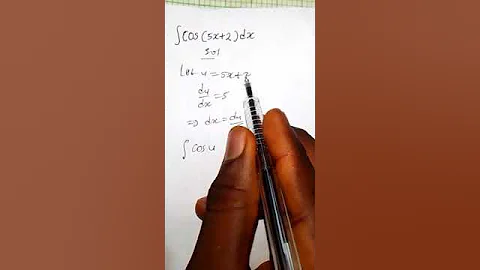 ∫cos(5x+2)dx
Sol
Let u = 5x+2
du/dx = 5
⇒ dx = du
∫ cos u